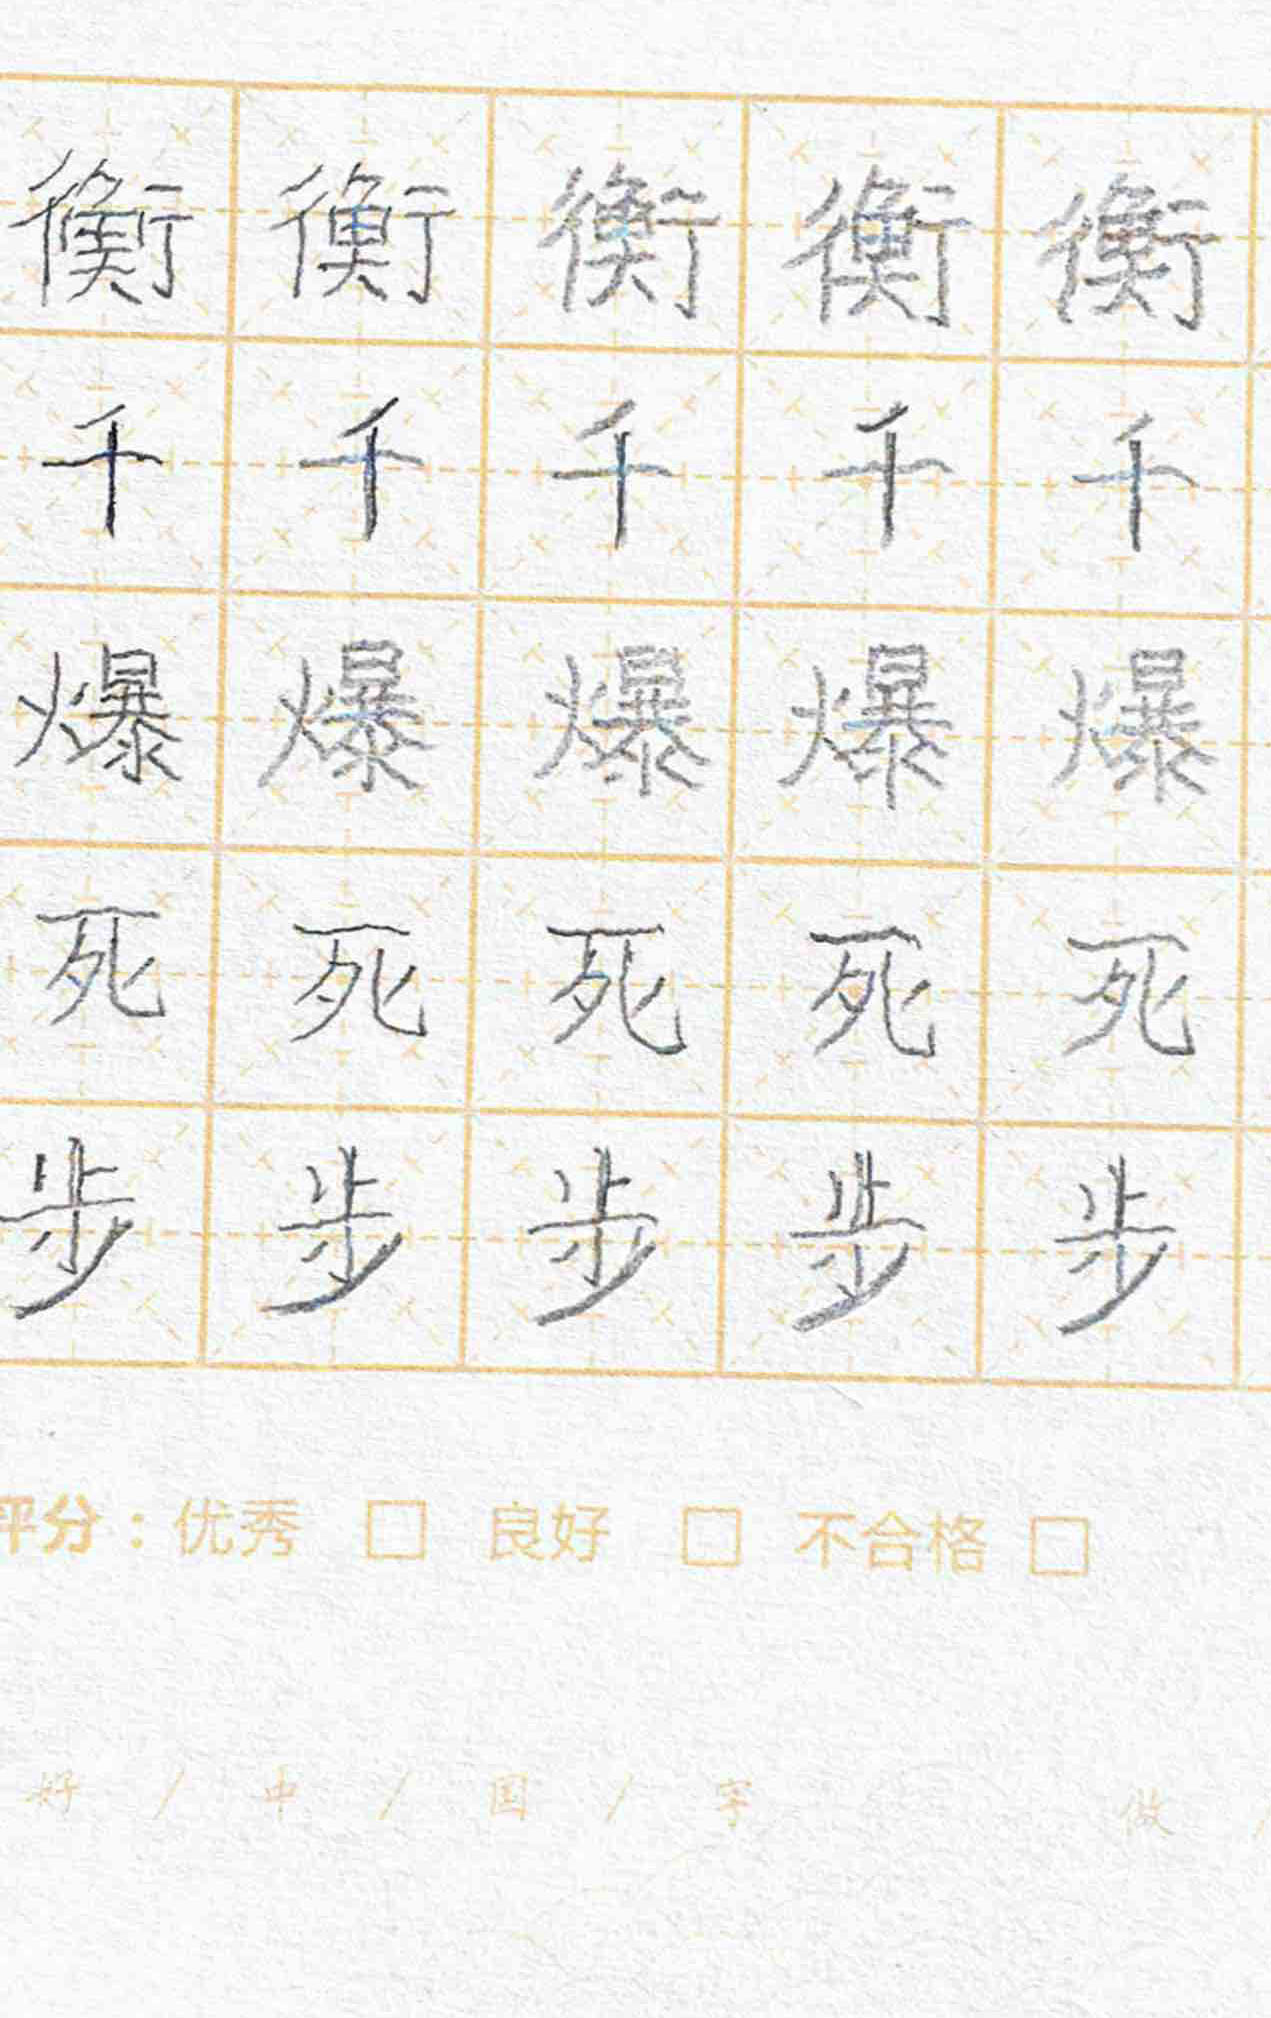 衡衡衡衡衡
千千千千千
爆爆爆爆爆
死死死死死
步步步步步
评分：优秀 □ 良好 □ 不合格 □
好 / 中 / 国 / 字 做 /